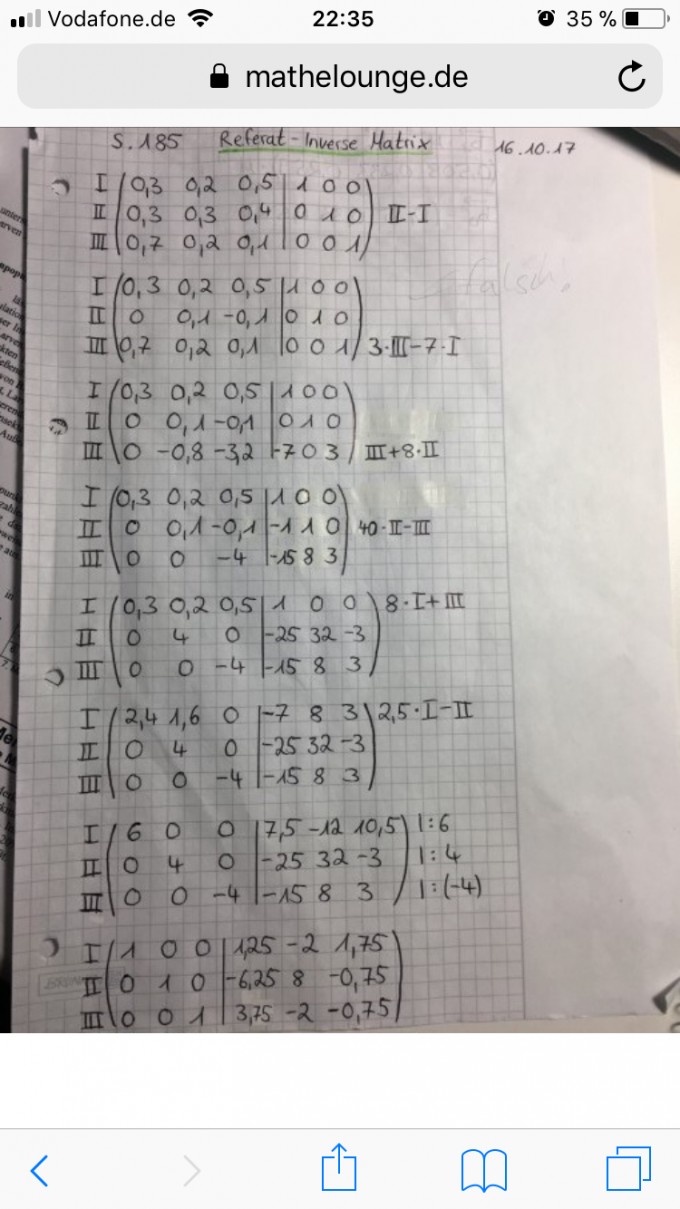 Vodafone.de 22:35 35 %
mathelounge.de
S. 185 Referat - Inverse Matrix 16.10.17
I (0,3 0,2 0,5 | 1 0 0)
II (0,3 0,3 0,4 | 0 1 0) II-I
III (0,7 0,2 0,1 | 0 0 1)
falsch!
I (0,3 0,2 0,5 | 1 0 0)
II (0 0,1 -0,1 | 0 1 0)
III (0,7 0,2 0,1 | 0 0 1) 3·III-7·I
I (0,3 0,2 0,5 | 1 0 0)
II (0 0,1 -0,1 | 0 1 0)
III (0 -0,8 -3,2 | -7 0 3) III+8·II
I (0,3 0,2 0,5 | 1 0 0)
II (0 0,1 -0,1 | -1 1 0) 40·II-III
III (0 0 -4 | -15 8 3)
I (0,3 0,2 0,5 | 1 0 0) 8·I+III
II (0 4 0 | -25 32 -3)
III (0 0 -4 | -15 8 3)
I (2,4 1,6 0 | -7 8 3) 2,5·I-II
II (0 4 0 | -25 32 -3)
III (0 0 -4 | -15 8 3)
I (6 0 0 | 7,5 -12 10,5) |:6
II (0 4 0 | -25 32 -3) |:4
III (0 0 -4 | -15 8 3) |:(-4)
I (1 0 0 | 1,25 -2 1,75)
II (0 1 0 | -6,25 8 -0,75)
III (0 0 1 | 3,75 -2 -0,75)